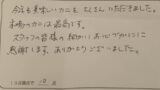 今年も美味しいカニをたくさんいただきました。
本場のカニは最高です。
スタッフの皆様の細かいお心づかいに
感謝します。ありがとうございました。